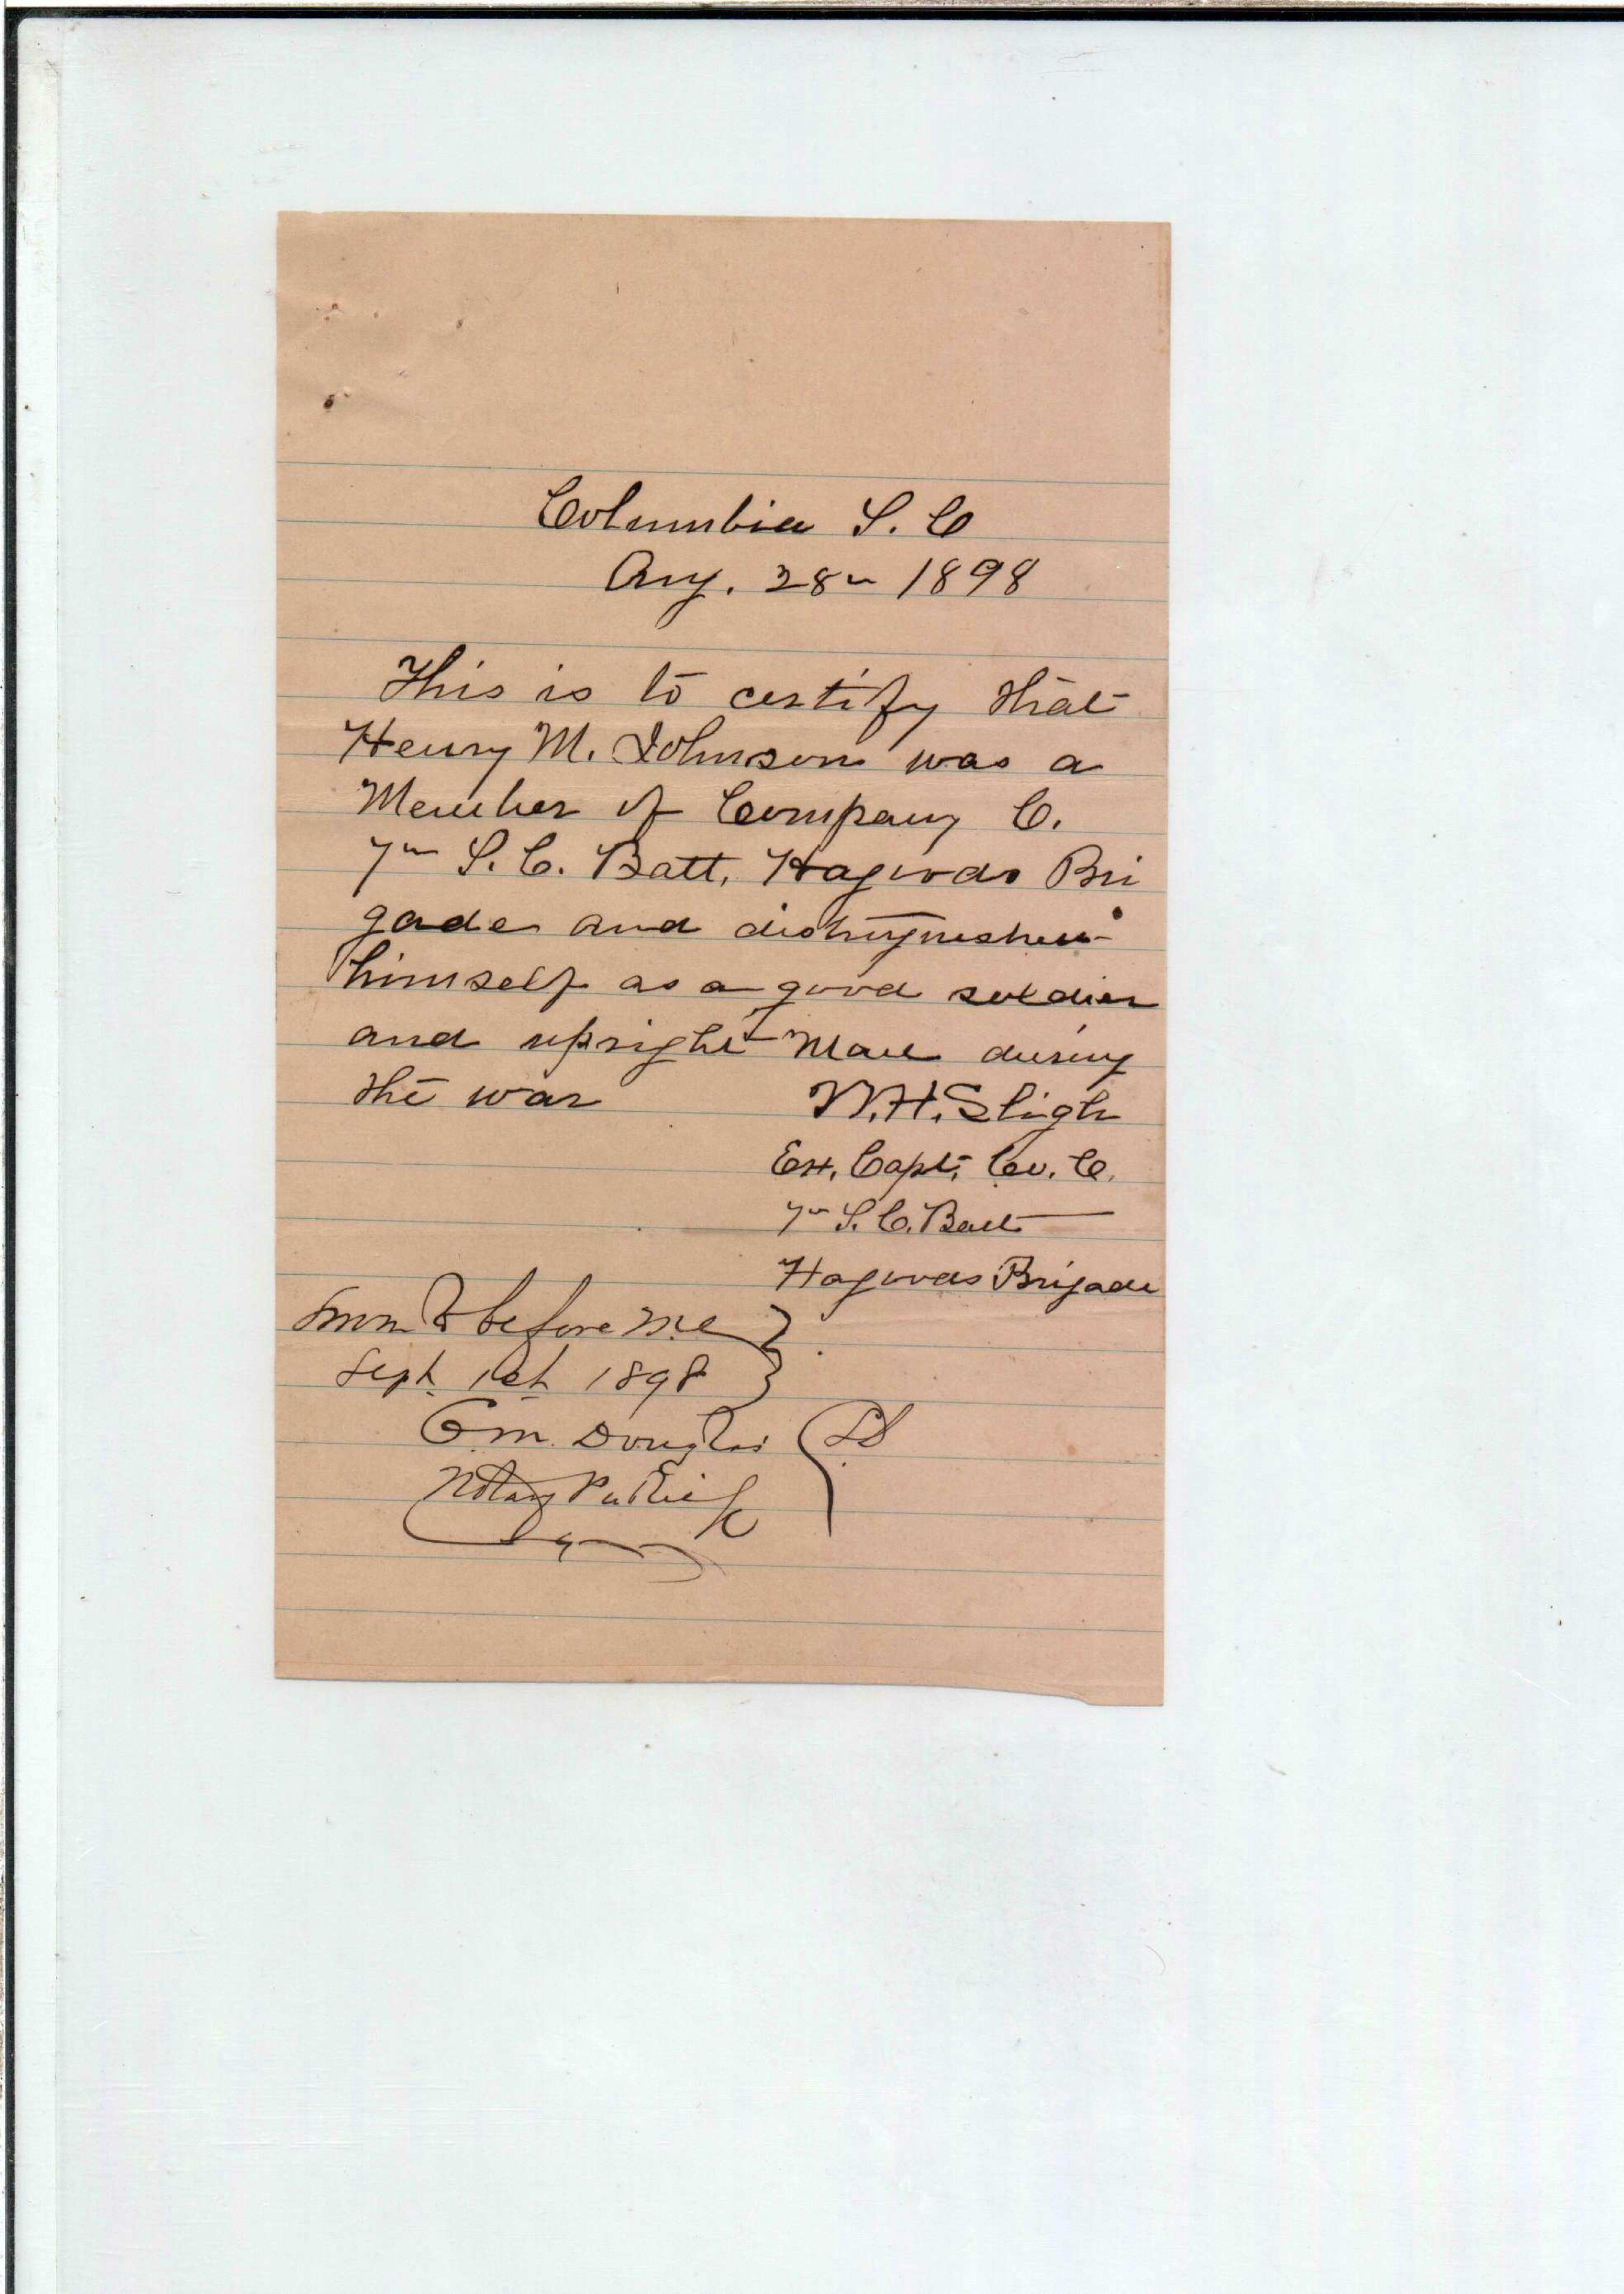 Columbia S. C
Aug. 28th 1898
This is to certify that
Henry M. Johnson was a
Member of Company C.
7th S. C. Batt, Hagoods Bri
gade and distinguished
himself as a good soldier
and upright Man during
the war
W. H. Sligh
Ex. Capt. Co. C.
7th S. C. Batt
Hagoods Brigade
Sworn to before me
Sept 1st 1898
Douglas
LS
Notary Public